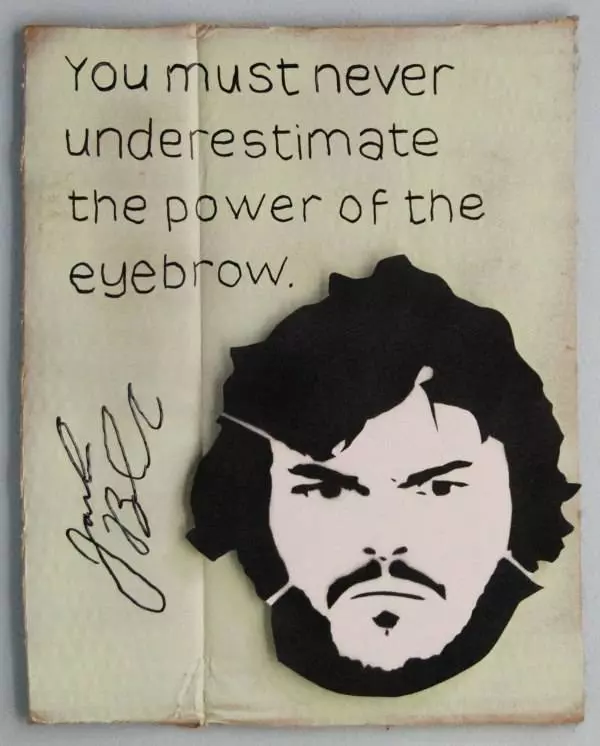 You must never
underestimate
the power of the
eyebrow.
Jack Black